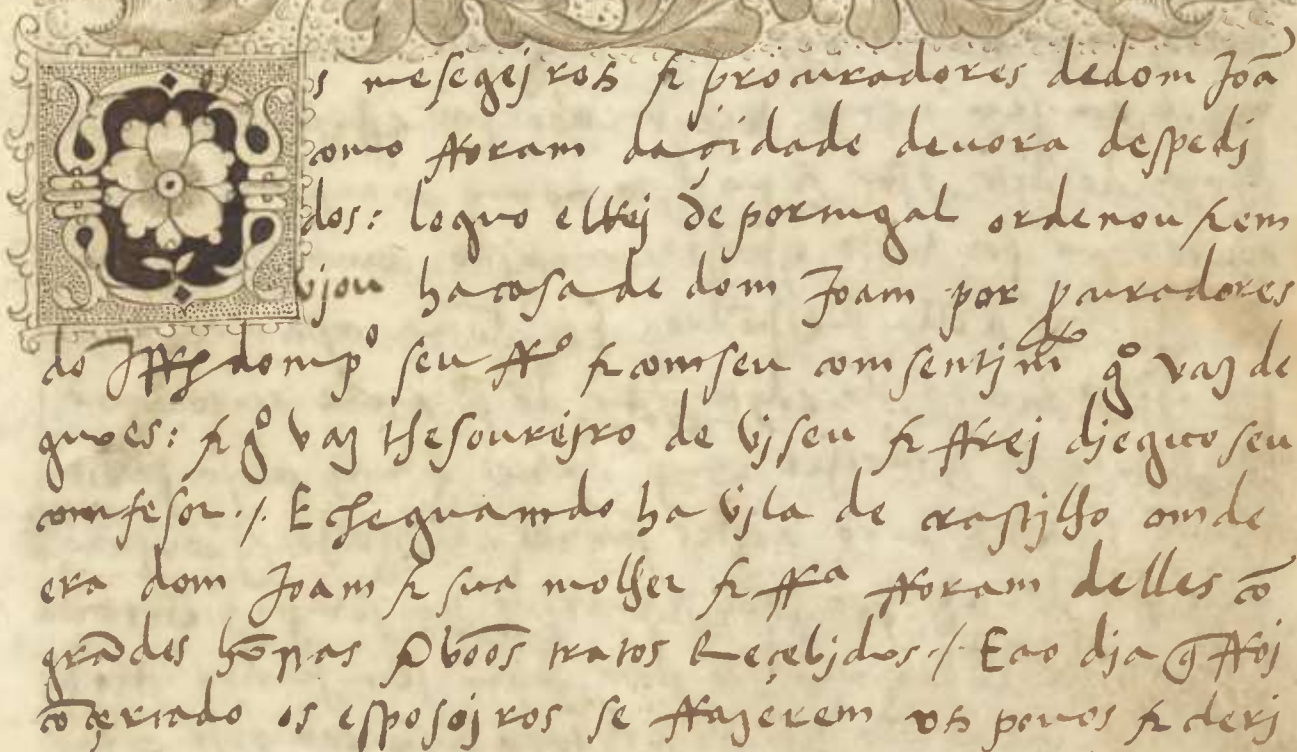 os mesegejros & procuradores dedom Joã
como fforam daçidade deuora despedj
dos: loguo ellRej de portugal ordenou & em
vjou hacasa de dom Joam por p̲curadores
do Jffte dom pº seu ffº & com seu comsentjmto gº vaz de
guoes: & gº vaz thesourejro de vjseu & ffrej djeguo seu
comfesor ./. E cheguamdo ha vjla de castjlho omde
era dom Joam & sua molher & ffa fforam delles cõ
grãdes hõrras & bõos tratos Reçebjdos ./. E ao dja q̃ ffoj
cõçertado os esposojros se ffazerem os pouos & clerj